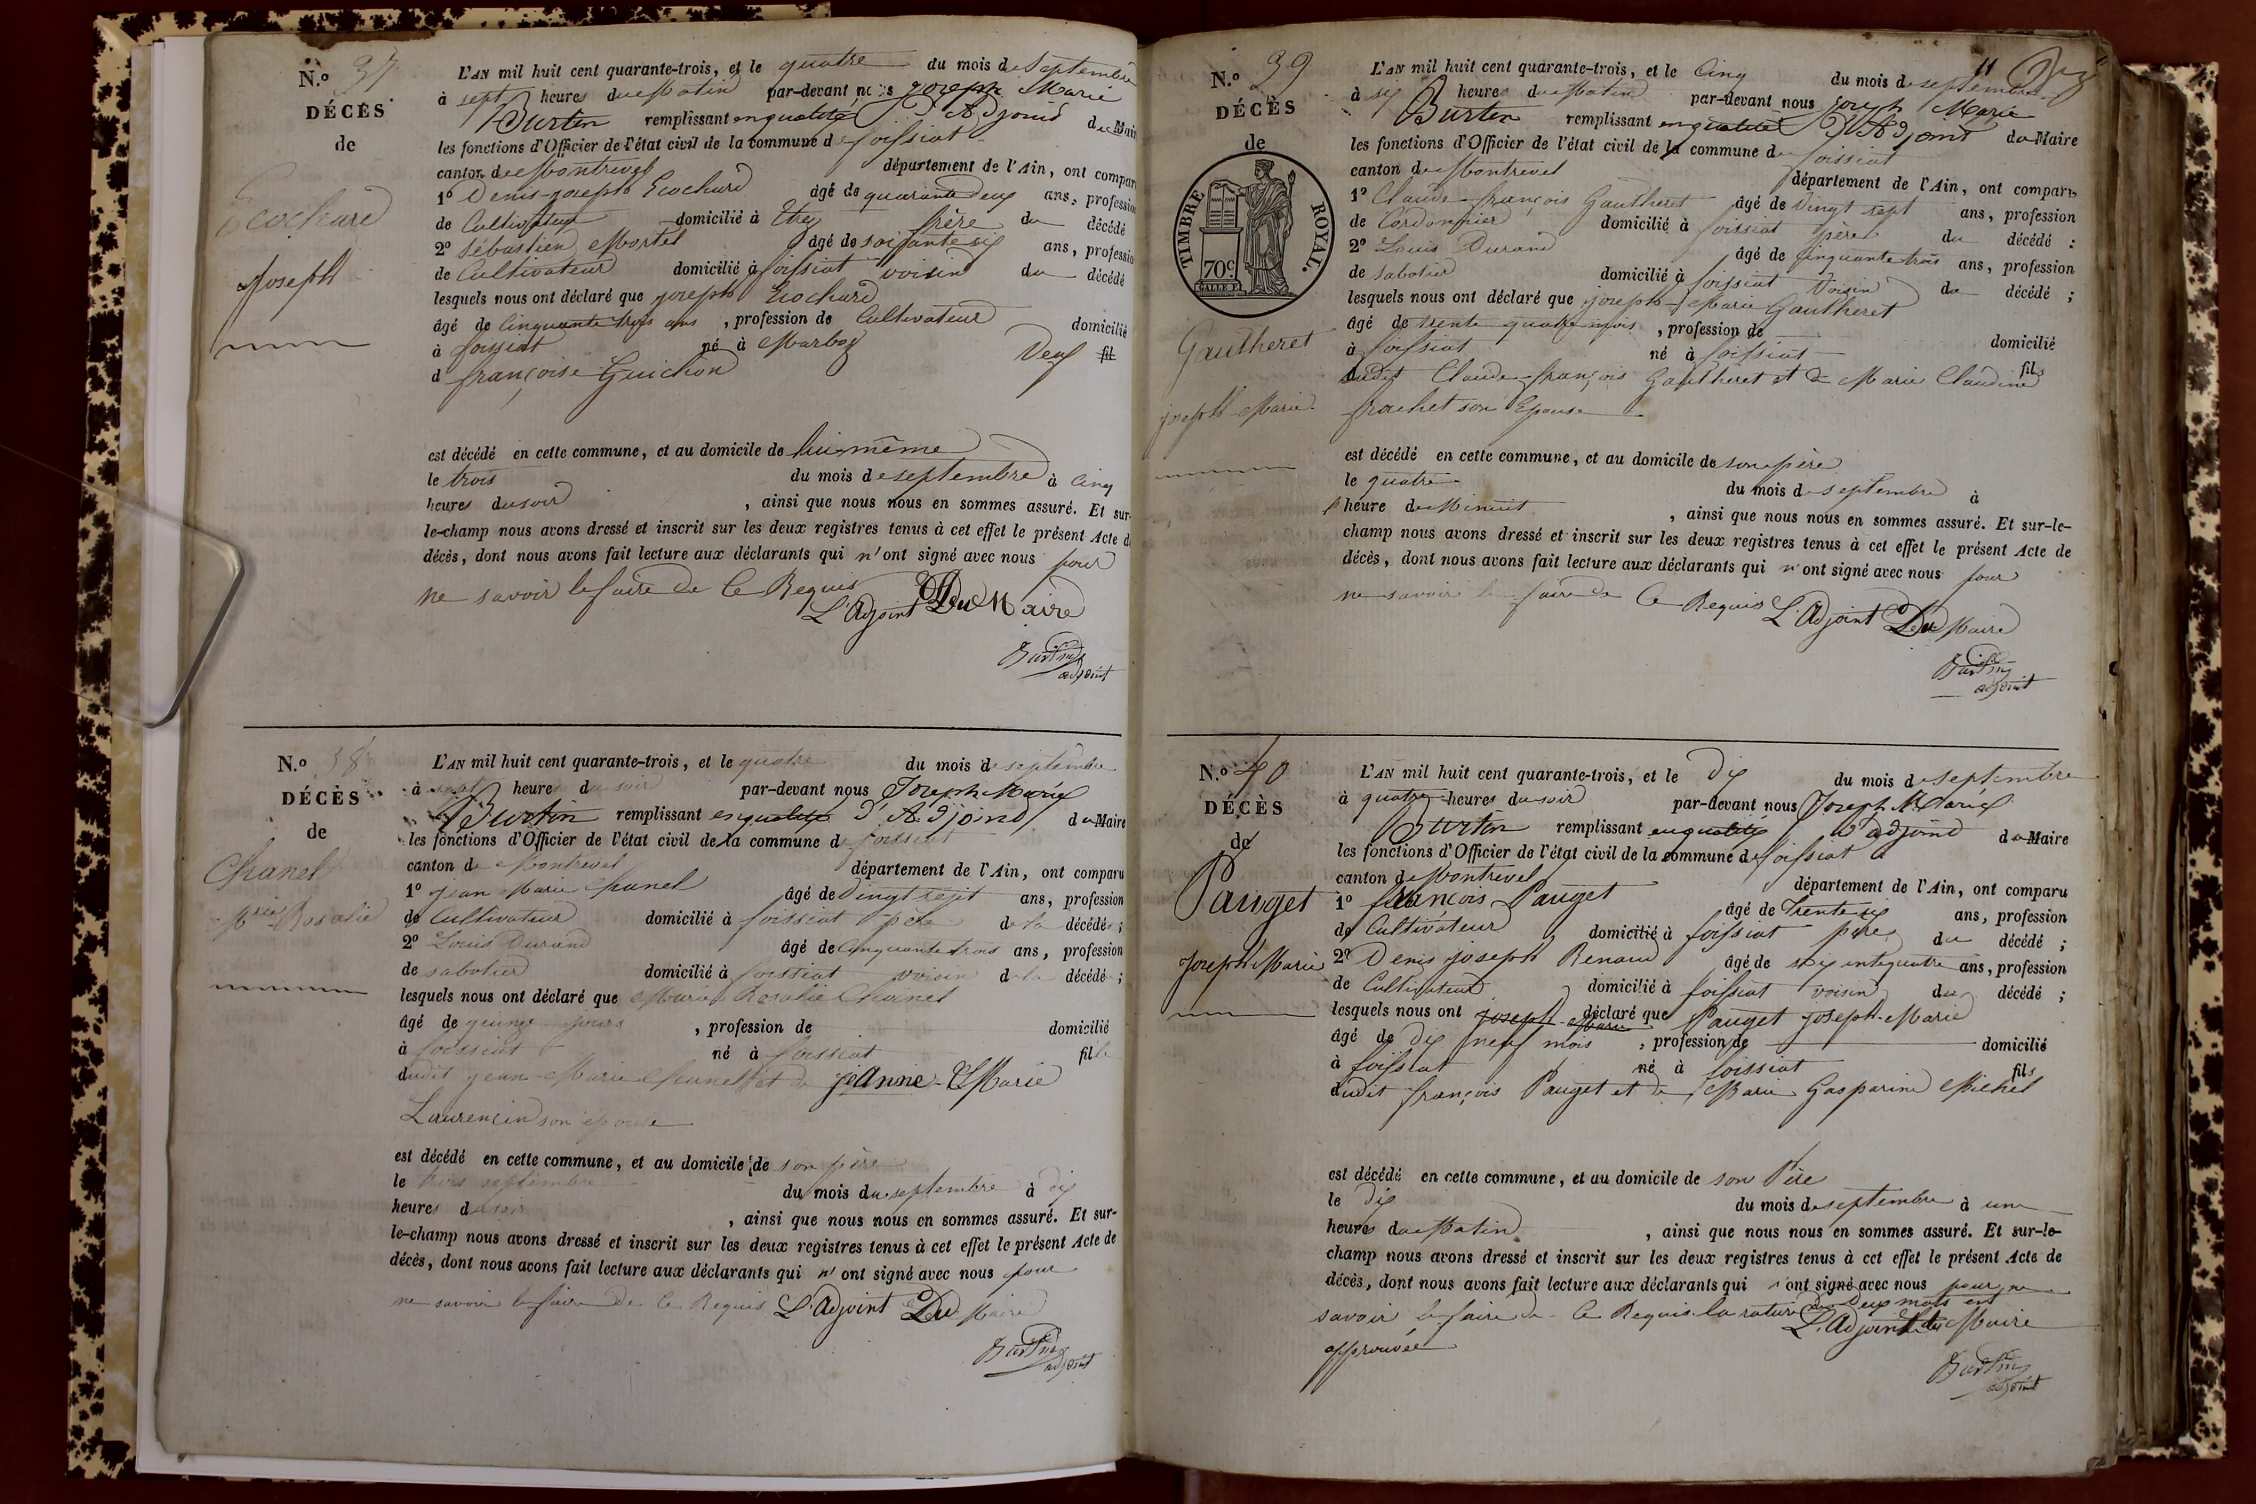 N.º 37
DÉCÈS
de
Ecochard
Joseph
L'AN mil huit cent quarante-trois, et le quatre du mois de Septembre
à sept heures du Matin par-devant nous Joseph Marie
Burtin remplissant en qualité d'Adjoint du Maire
les fonctions d'Officier de l'état civil de la commune de foissiat
canton de Montrevel département de l'Ain, ont comparu
1º Denis-joseph Ecochard âgé de quarante deux ans, profession
de Cultivateur domicilié à frère du décédé
2º Sébastien Mortel âgé de soissante six ans, profession
de Cultivateur domicilié à foissiat voisin du décédé
lesquels nous ont déclaré que joseph Ecochard
âgé de Cinquante trois ans, profession de Cultivateur domicilié
à foissiat né à Marboz Veuf fil
d françoise Guichon
est décédé en cette commune, et au domicile de lui même
le trois du mois de septembre à Cinq
heures du soir, ainsi que nous nous en sommes assuré. Et sur-
le-champ nous avons dressé et inscrit sur les deux registres tenus à cet effet le présent Acte de
décès, dont nous avons fait lecture aux déclarants qui n'ont signé avec nous pour
ne savoir le faire de Ce Requis L'Adjoint Du Maire
Burtin
adjoint
N.º 38
DÉCÈS
de
Chanel
Mie Rosalie
L'AN mil huit cent quarante-trois, et le quatre du mois de septembre
à sept heures du soir par-devant nous Joseph Marie
Burtin remplissant en qualité d'Adjoint du Maire
les fonctions d'Officier de l'état civil de la commune de foissiat
canton de Montrevel département de l'Ain, ont comparu
1º jean Marie Chanel âgé de Vingt sept ans, profession
de Cultivateur domicilié à foissiat père de la décédée;
2º Louis Durand âgé de Cinquante trois ans, profession
de sabotier domicilié à foissiat voisin de la décédée;
lesquels nous ont déclaré que Marie Rosalie Chanel
âgé de quinze jours, profession de domicilié
à foissiat né à foissiat fille
dudit jean-Marie Chanel et de jeanne-Marie
Laurencin son épouse
est décédé en cette commune, et au domicile de son père
le trois septembre du mois de septembre à dix
heures du soir, ainsi que nous nous en sommes assuré. Et sur-
le-champ nous avons dressé et inscrit sur les deux registres tenus à cet effet le présent Acte de
décès, dont nous avons fait lecture aux déclarants qui n'ont signé avec nous pour
ne savoir le faire de Ce Requis L'Adjoint Du Maire
Burtin
adjoint
11
N.º 39
DÉCÈS
de
TIMBRE ROYAL.
70c
SALLE J.
Gautheret
joseph-Marie
L'AN mil huit cent quarante-trois, et le Cinq du mois de septembre
à six heures du Matin par-devant nous joseph Marie
Burtin remplissant en qualité d'Adjoint du Maire
les fonctions d'Officier de l'état civil de la commune de foissiat
canton de Montrevel département de l'Ain, ont comparu
1º Claude-françois Gautheret âgé de Vingt sept ans, profession
de Cordonnier domicilié à foissiat père du décédé:
2º Louis Durand âgé de Cinquante trois ans, profession
de sabotier domicilié à foissiat Voisin du décédé;
lesquels nous ont déclaré que joseph-Marie Gautheret
âgé de trente quatre mois, profession de domicilié
à foissiat né à foissiat fils
dudit Claude-françois Gautheret et de Marie Claudine
frachet son Epouse
est décédé en cette commune, et au domicile de son père
le quatre du mois de septembre à
heure de Minuit, ainsi que nous nous en sommes assuré. Et sur-le-
champ nous avons dressé et inscrit sur les deux registres tenus à cet effet le présent Acte de
décès, dont nous avons fait lecture aux déclarants qui n'ont signé avec nous pour
ne savoir le faire de Ce Requis L'Adjoint Du Maire
Burtin
adjoint
N.º 40
DÉCÈS
de
Pauget
Joseph Marie
L'AN mil huit cent quarante-trois, et le Dix du mois de septembre
à quatre heures du soir par-devant nous Joseph Marie
Burtin remplissant en qualité d'adjoint du Maire
les fonctions d'Officier de l'état civil de la commune de foissiat
canton de Montrevel département de l'Ain, ont comparu
1º françois Pauget âgé de Trente six ans, profession
de Cultivateur domicilié à foissiat père du décédé;
2º Denis joseph Renaud âgé de soixante quatre ans, profession
de Cultivateur domicilié à foissiat voisin du décédé;
lesquels nous ont joseph-Marie déclaré que Pauget joseph-Marie
âgé de Dix neuf mois, profession de domicilié
à foissiat né à foissiat fils
dudit françois Pauget et de Marie Gasparine Michel
est décédé en cette commune, et au domicile de son Père
le Dix du mois de septembre à une
heures du Matin, ainsi que nous nous en sommes assuré. Et sur-le-
champ nous avons dressé et inscrit sur les deux registres tenus à cet effet le présent Acte de
décès, dont nous avons fait lecture aux déclarants qui n'ont signé avec nous pour ne
savoir le faire de Ce Requis la rature des Deux mots est
approuvée L'Adjoint du Maire
Burtin
adjoint